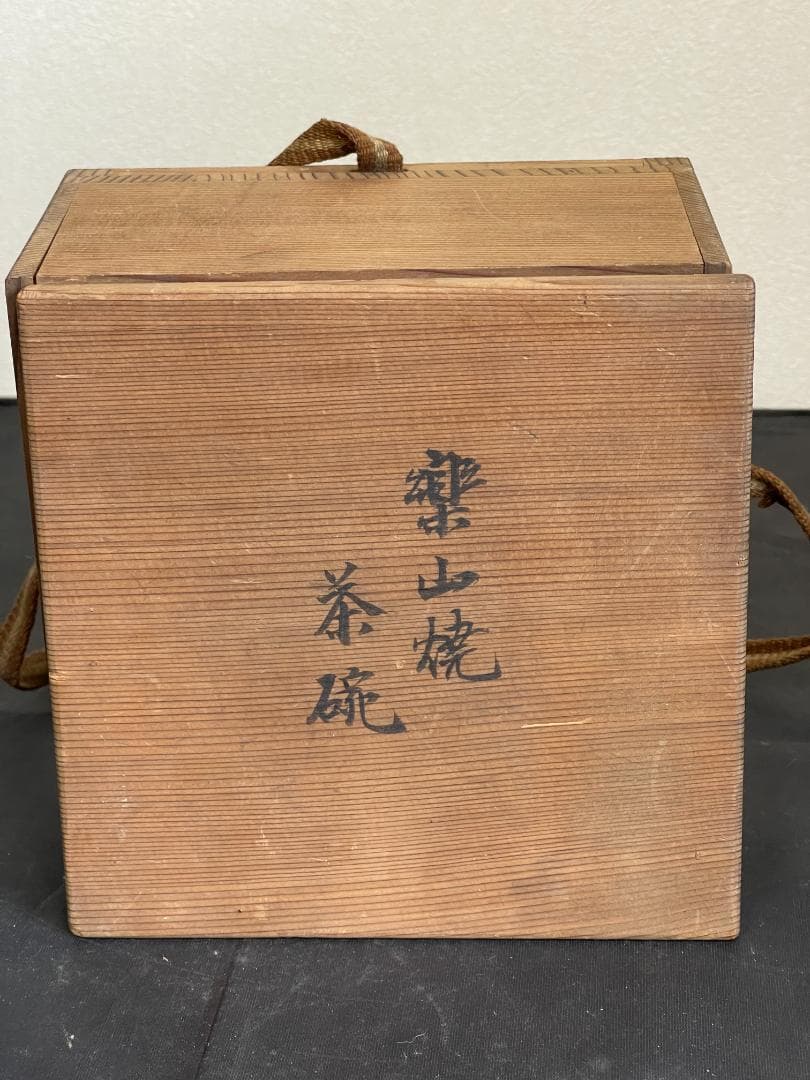 樂山燒
茶碗